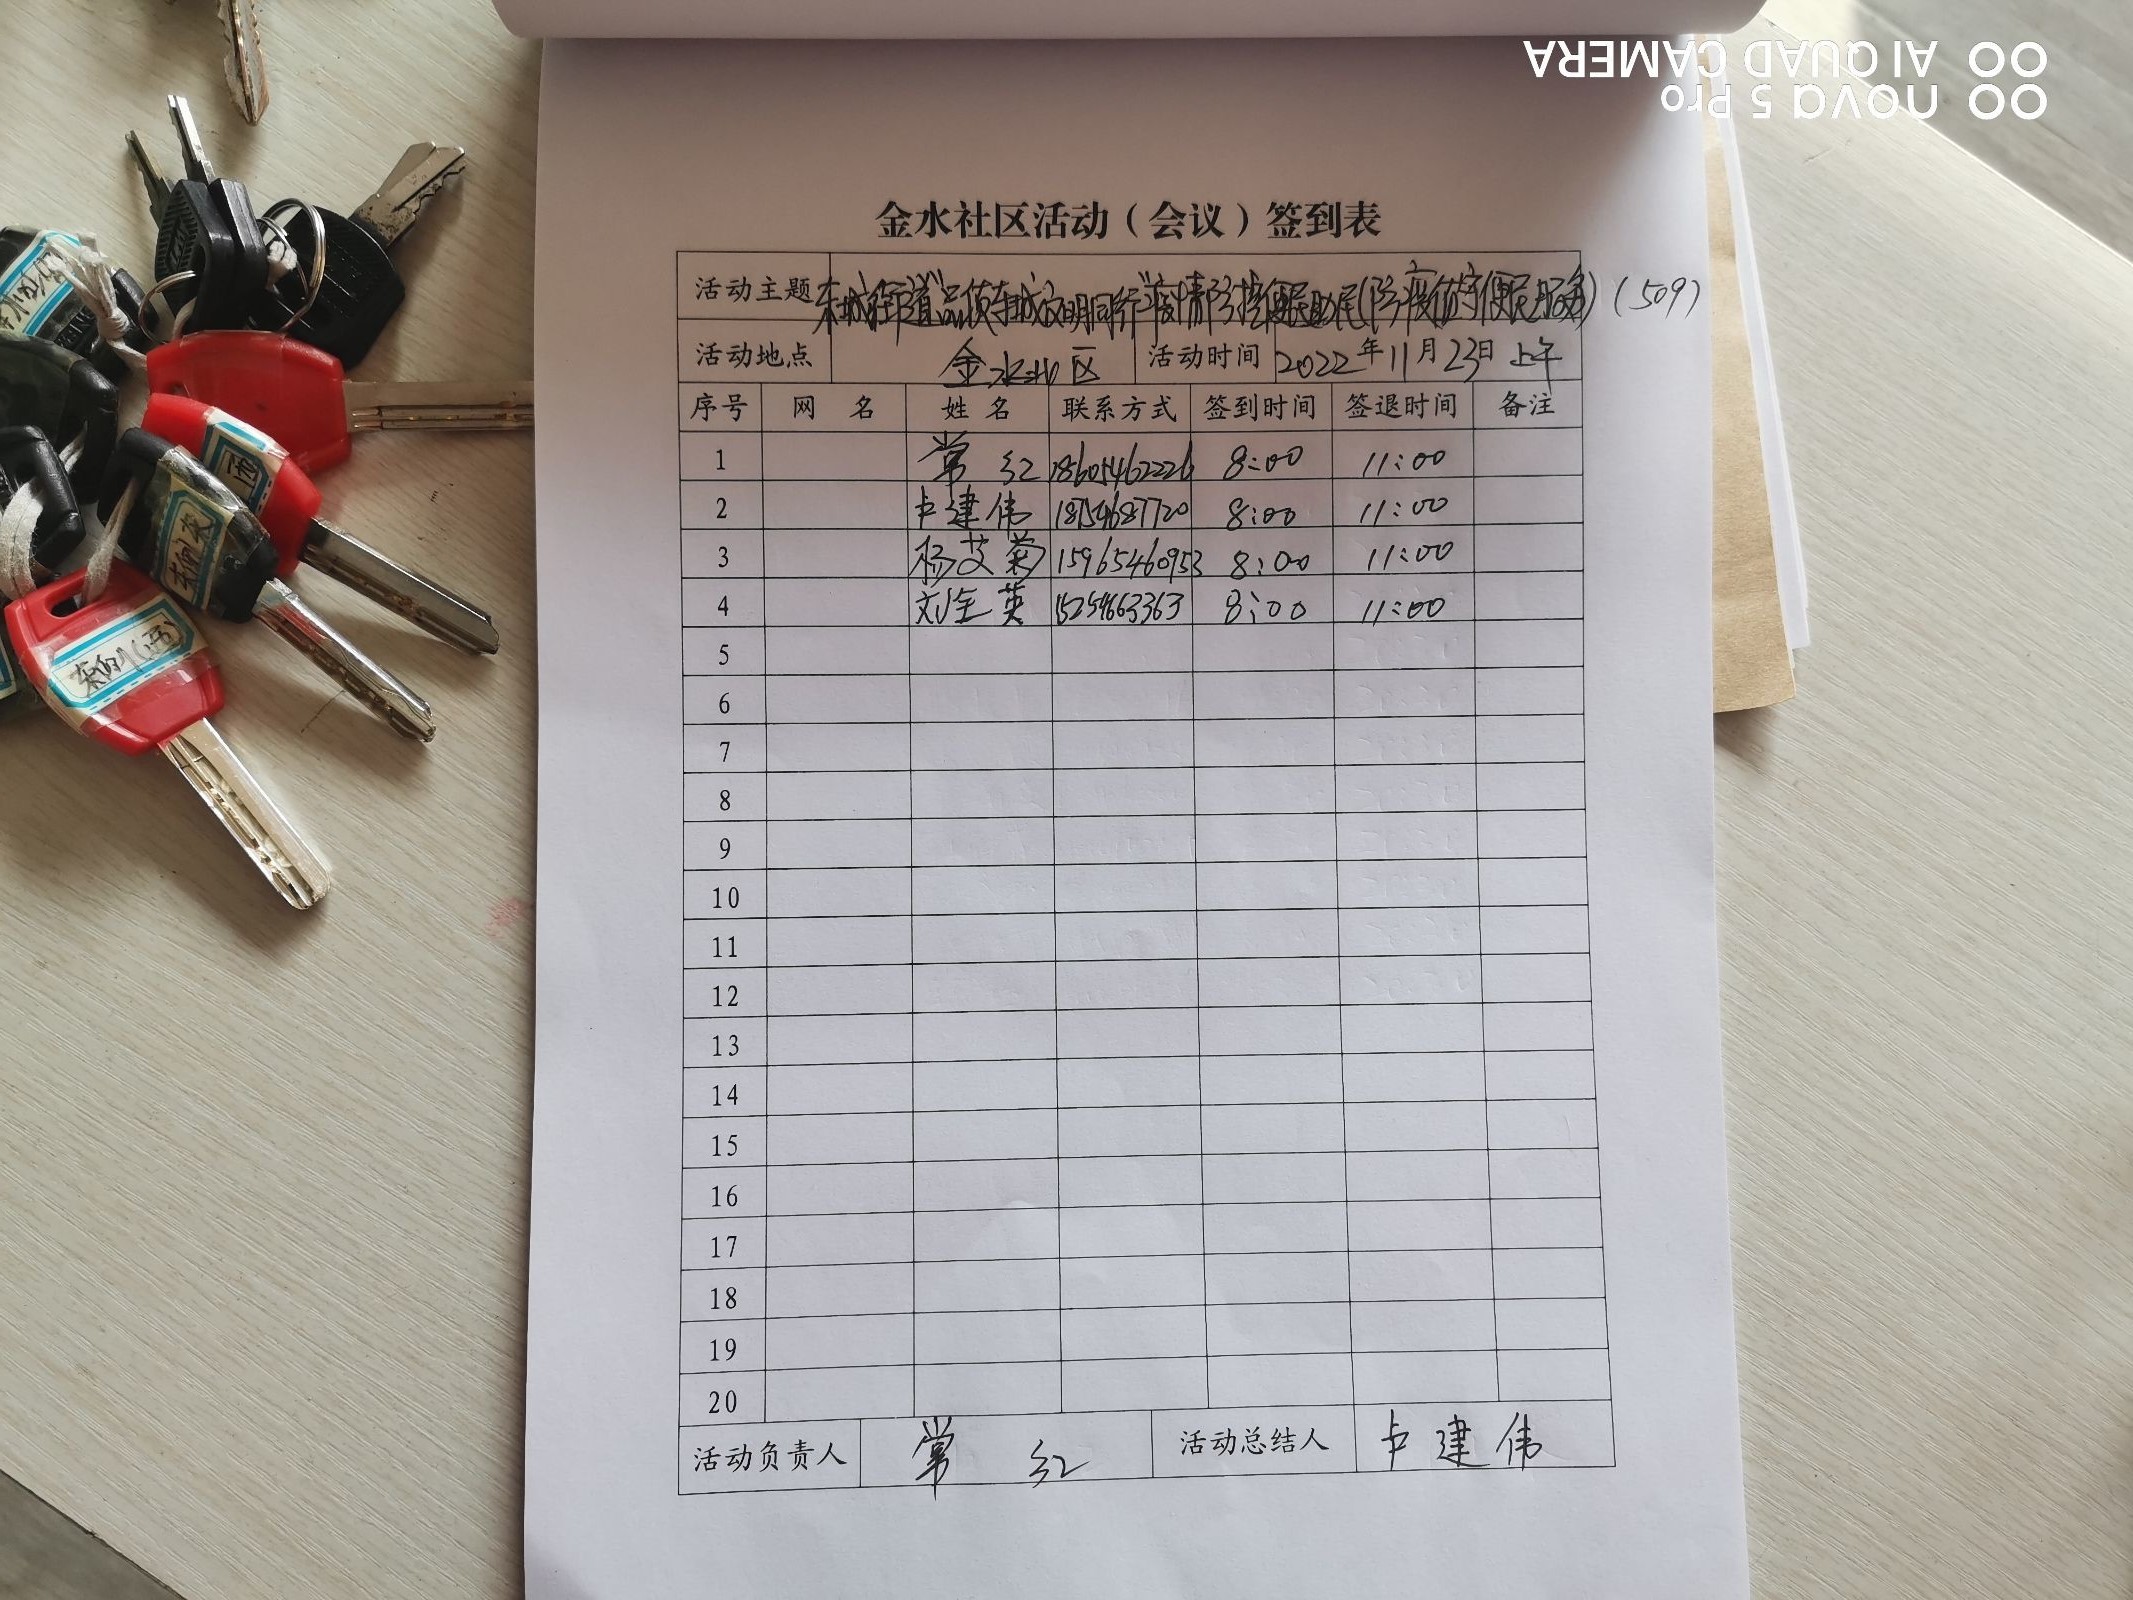 nova 5 Pro
AI QUAD CAMERA
金水社区活动（会议）签到表
活动主题 东城街道"品质东城 文明同行"疫情防控便民助民(防疫值守便民服务)（509）
活动地点 金水社区 活动时间 2022年11月23日 上午
序号 网 名 姓 名 联系方式 签到时间 签退时间 备注
1 常 红 18605462226 8:00 11:00
2 卢建伟 18754687720 8:00 11:00
3 杨艾菊 15965460953 8:00 11:00
4 刘全英 15254663363 8:00 11:00
5
6
7
8
9
10
11
12
13
14
15
16
17
18
19
20
活动负责人 常 红 活动总结人 卢建伟